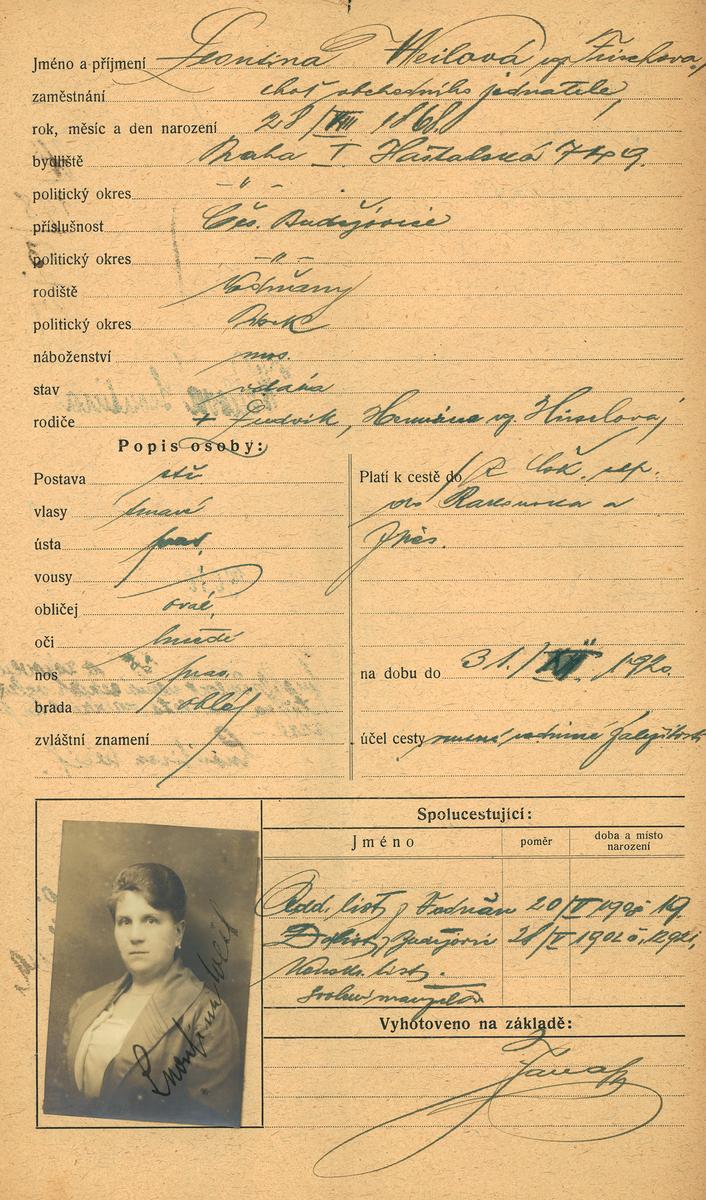 Jméno a příjmení Leontina Weilová
zaměstnání choť obchodního jednatele
rok, měsíc a den narození 28/VIII 1868
bydliště Praha I Haštalská 749.
politický okres –"–
příslušnost Čes. Budějovice
politický okres –"–
rodiště Vodňany
politický okres Písek
náboženství mos.
stav vdaná
rodiče + Ludvík, Hermína
Popis osoby:
Postava stř.
vlasy tmavé
ústa prav.
vousy
obličej ovál.
oči hnědé
nos prav.
brada oblá
zvláštní znamení
Platí k cestě do z Čsk. rep.
do Rakouska a
zpět.
na dobu do 31./XII 1920.
účel cesty rodinné záležitosti
Spolucestující:
Jméno
poměr
doba a místo
narození
Odd. list z Vodňan 20/
D. list z Budějovic 28/V
list.
manžela
Vyhotoveno na základě:
Leontina Weil